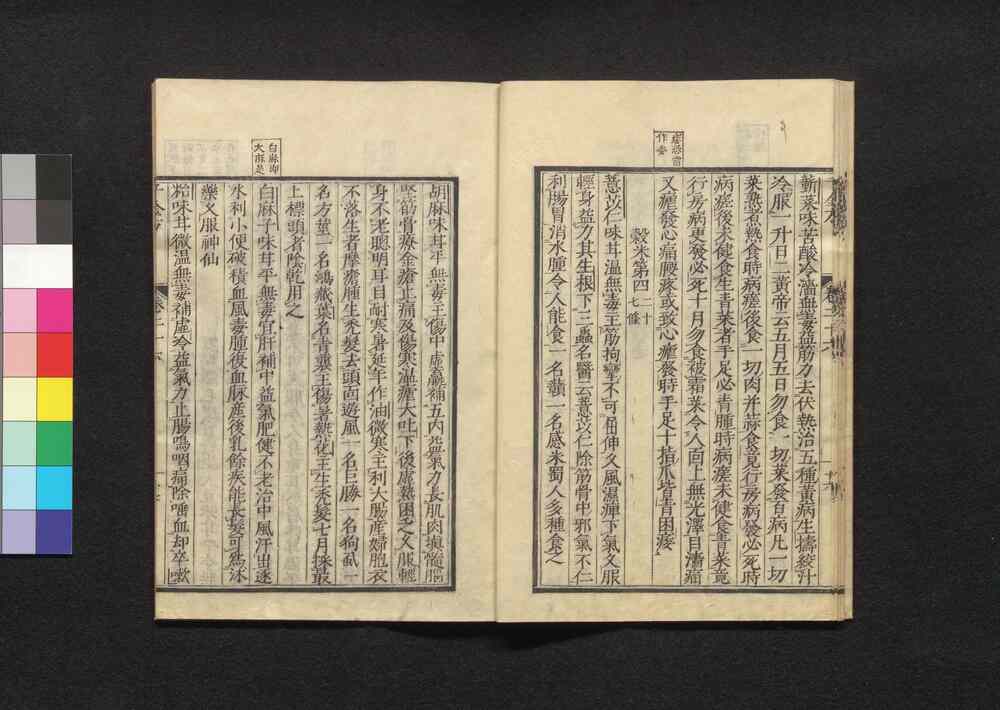 蔪菜味苦酸冷濇無毒益筋力去伏熱治五種黃病生擣絞汁
冷服一升日二黃帝云五月五日勿食一切菜發百病凡一切
菜熟煮熱食時病瘥後食一切肉并蒜食竟行房病發必死時
病瘥後未健食生青菜者手足必青腫時病瘥未健食青菜竟
行房病更發必死十月勿食被霜菜令人面上無光澤目濇痛
又瘧發心痛腰疼或致心瘧發時手足十指爪皆青困痿
穀米第四二十七條
薏苡仁味甘溫無毒主筋拘攣不可屈伸久風濕痺下氣久服
輕身益力其生根下三蟲名醫云薏苡仁除筋骨中邪氣不仁
利腸胃消水腫令人能食一名䕬一名感米蜀人多種食之
胡麻味甘平無毒主傷中虛羸補五内益氣力長肌肉填髓腦
堅筋骨療金瘡止痛及傷寒溫瘧大吐下後虛熱困乏久服輕
身不老聰明耳目耐寒暑延年作油微寒主利大腸產婦胞衣
不落生者摩瘡腫生禿髮去頭面遊風一名巨勝一名狗虱一
名方莖一名鴻藏葉名青蘘主傷暑熱花主生禿髮七月採最
上標頭者陰乾用之
白麻子味甘平無毒宜肝補中益氣肥健不老治中風汗出逐
水利小便破積血風毒腫復血脉產後乳餘疾能長髮可爲沐
藥久服神仙
飴味甘微溫無毒補虛冷益氣力止腸鳴咽痛除唾血却卒嗽
白麻卽
大麻是